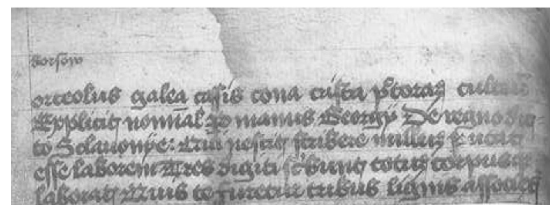 gorsow
orceolus galea cassis cona crista pectoral cultrum
Explicit nominale per manus Georgij De regno dic-
to Sclauonye: Qui nescit scribere nullum putat
esse laborem Tres digiti scribunt totus corpusque
laborat Quis te furetur tribus lignis associetur